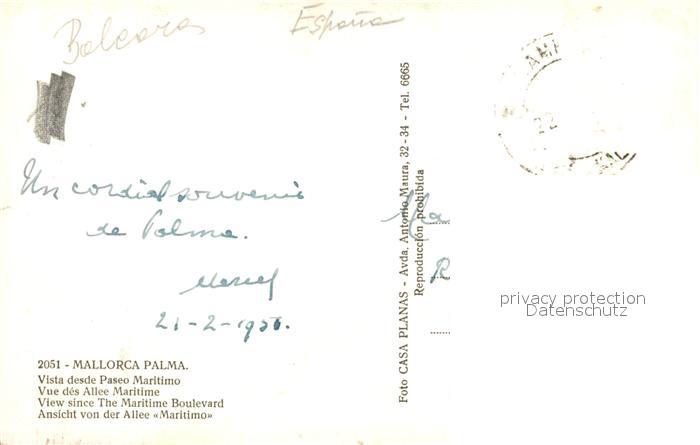 Baleares
España
Un cordial souvenir
de Palma.
21-2-195
2051 - MALLORCA PALMA.
Vista desde Paseo Maritimo
Vue dés Allee Maritime
View since The Maritime Boulevard
Ansicht von der Allee «Maritimo»
Foto CASA PLANAS - Avda. Antonio Maura, 32-34 - Tel. 6665
Reproducción prohibida
22
R
privacy protection
Datenschutz